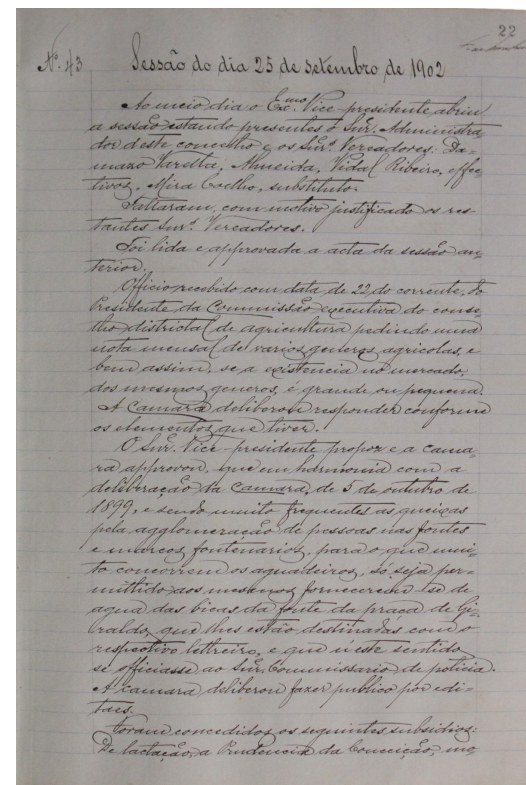 22
Nº. 43 Sessão do dia 25 de Setembro de 1902
Ao meio dia o Exc.mo Vice-presidente abriu
a sessão estando presentes o Snr. Administra
dor d'este concelho e os Snr.s Vereadores: Da-
mazo Varella, Almeida, Vidal Ribeiro, effec-
tivos, Mira Coelho, substituto.
Faltaram, com motivo justificado os res-
tantes Snr.s Vereadores.
Foi lida e approvada a acta da sessão an-
terior.
Officio recebido com data, de 22 do corrente, do
Presidente da Commissão executiva do conse
lho districtal de agricultura pedindo uma
nota mensal de varios generos agricolas, e
bem assim, se a existencia no mercado,
dos mesmos generos, é grande ou pequena.
A Camara deliberou responder conforme
os elementos que tiver.
O Snr. Vice-presidente propoz e a cama-
ra approvou, que em harmonia com a
deliberação da Camara, de 5 de outubro de
1899, e sendo muito frequentes as queixas
pela agglomeração de pessoas nas fontes
e marcos fontenarios, para o que mui-
to concorrem os aguadeiros, só seja per-
mittido aos mesmos fornecerem-se de
agua das bicas da fonte da praça de Gi-
raldo, que lhes estão destinadas com o
respectivo letreiro, e que n'este sentido
se officiasse ao Snr. Commissario de policia.
A camara deliberou fazer publico por edi-
taes.
Foram concedidos os seguintes subsidios:
De lactação, a Prudencia da Conceição, mo